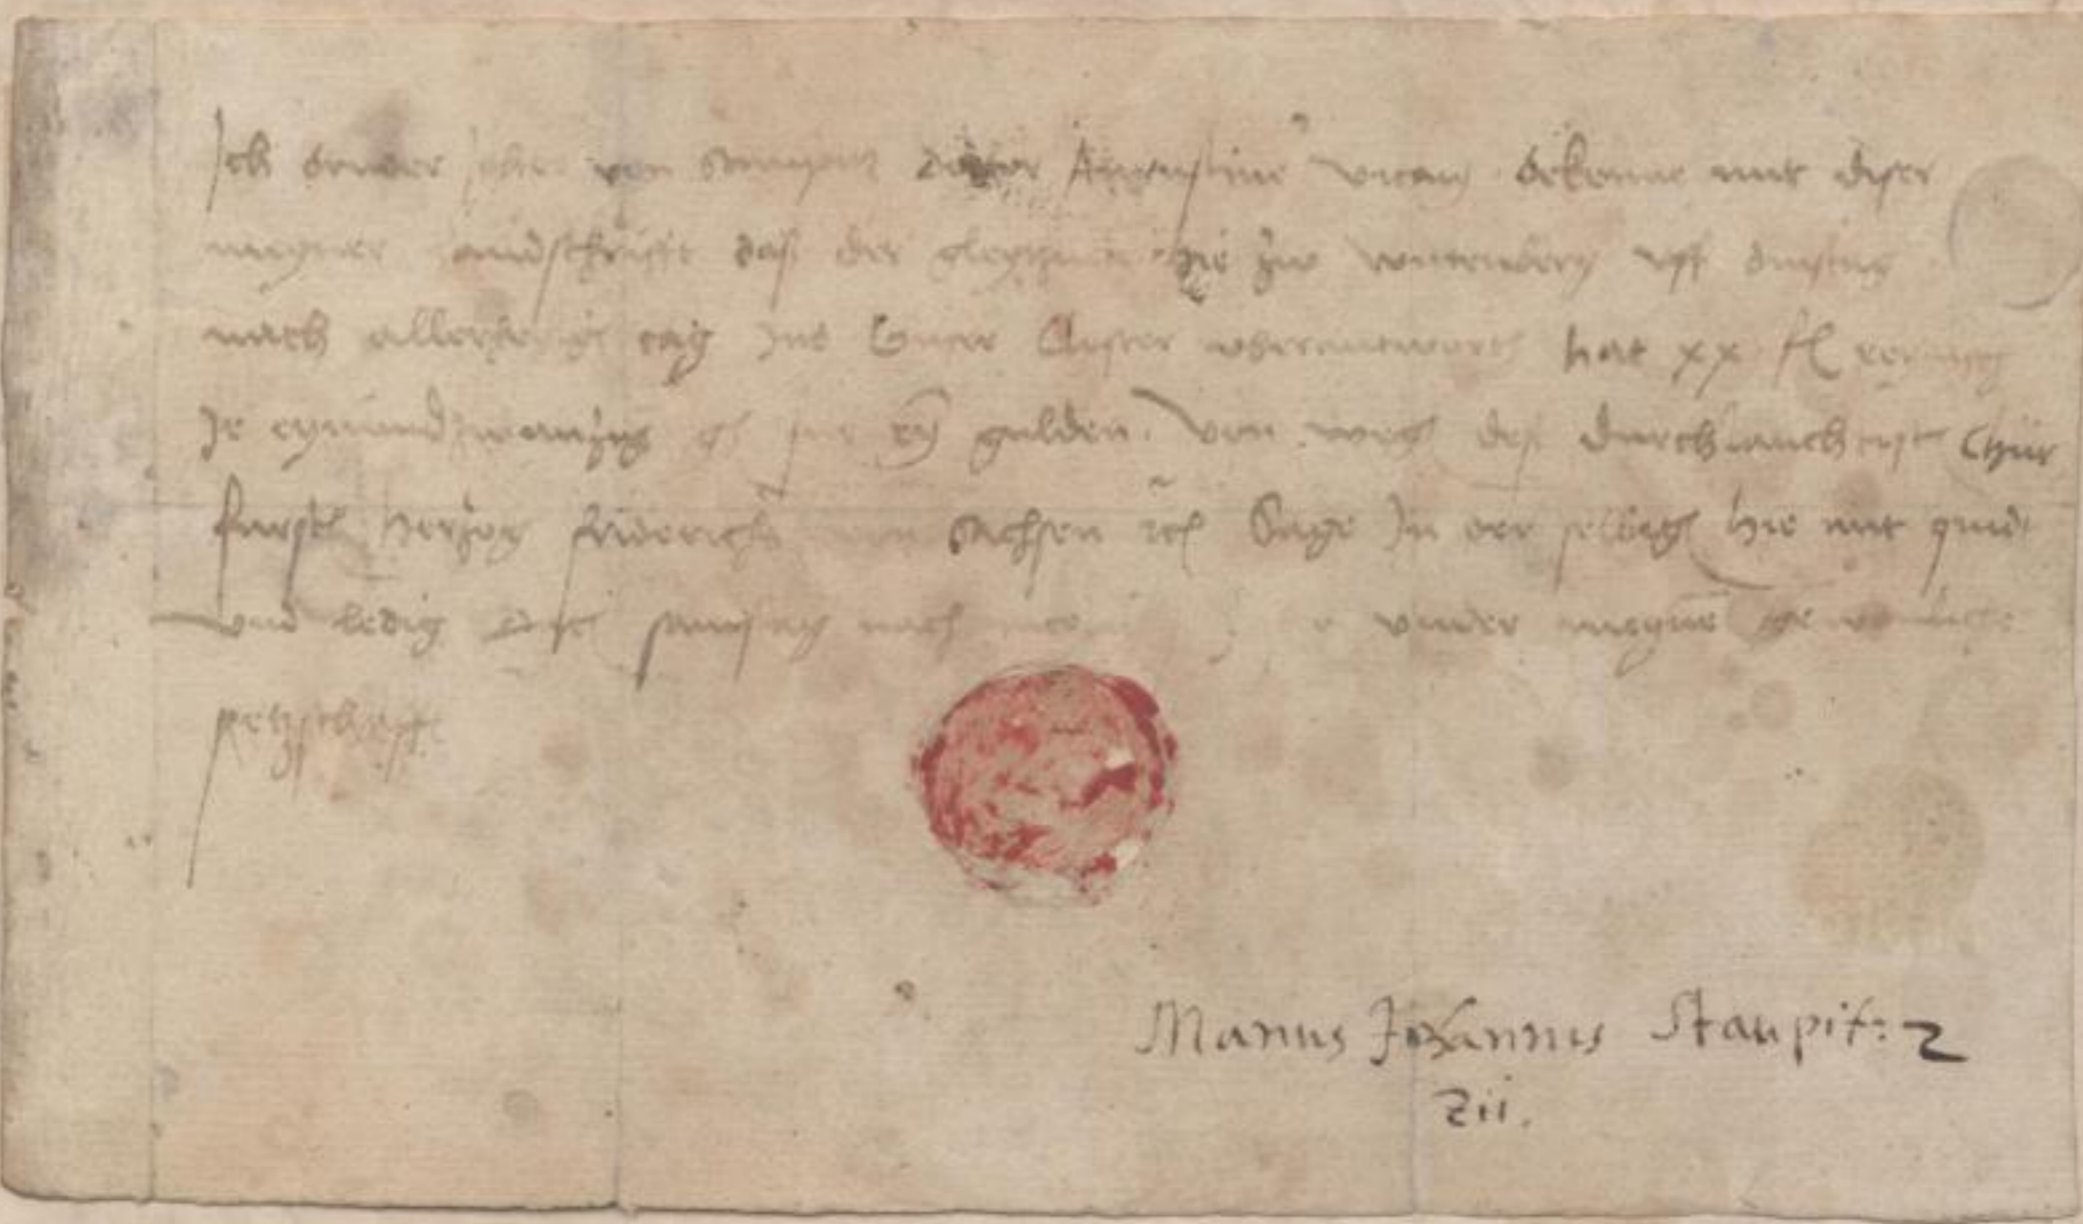 Ich bruder Johan von Staupitz doctor Augustiner vicari bekenne mit diser
meyner handschrifft das der gleyzman hie zw wittenberg uff dinstag
nach allerheilgē tag Ins Unser Closter uberantwort hat xx fl reynisch
Je eynundzwanzig gś fur eyn gulden von wegē deß durchlauchtigstē Chur
furstē herzog friderichs von Sachsen ꝛc Sage In der selbigē hie mit quidt
und ledig sunstag nach under meynē gewonlichē
petzschafft
Manus Johannis Staupit: z
zii.